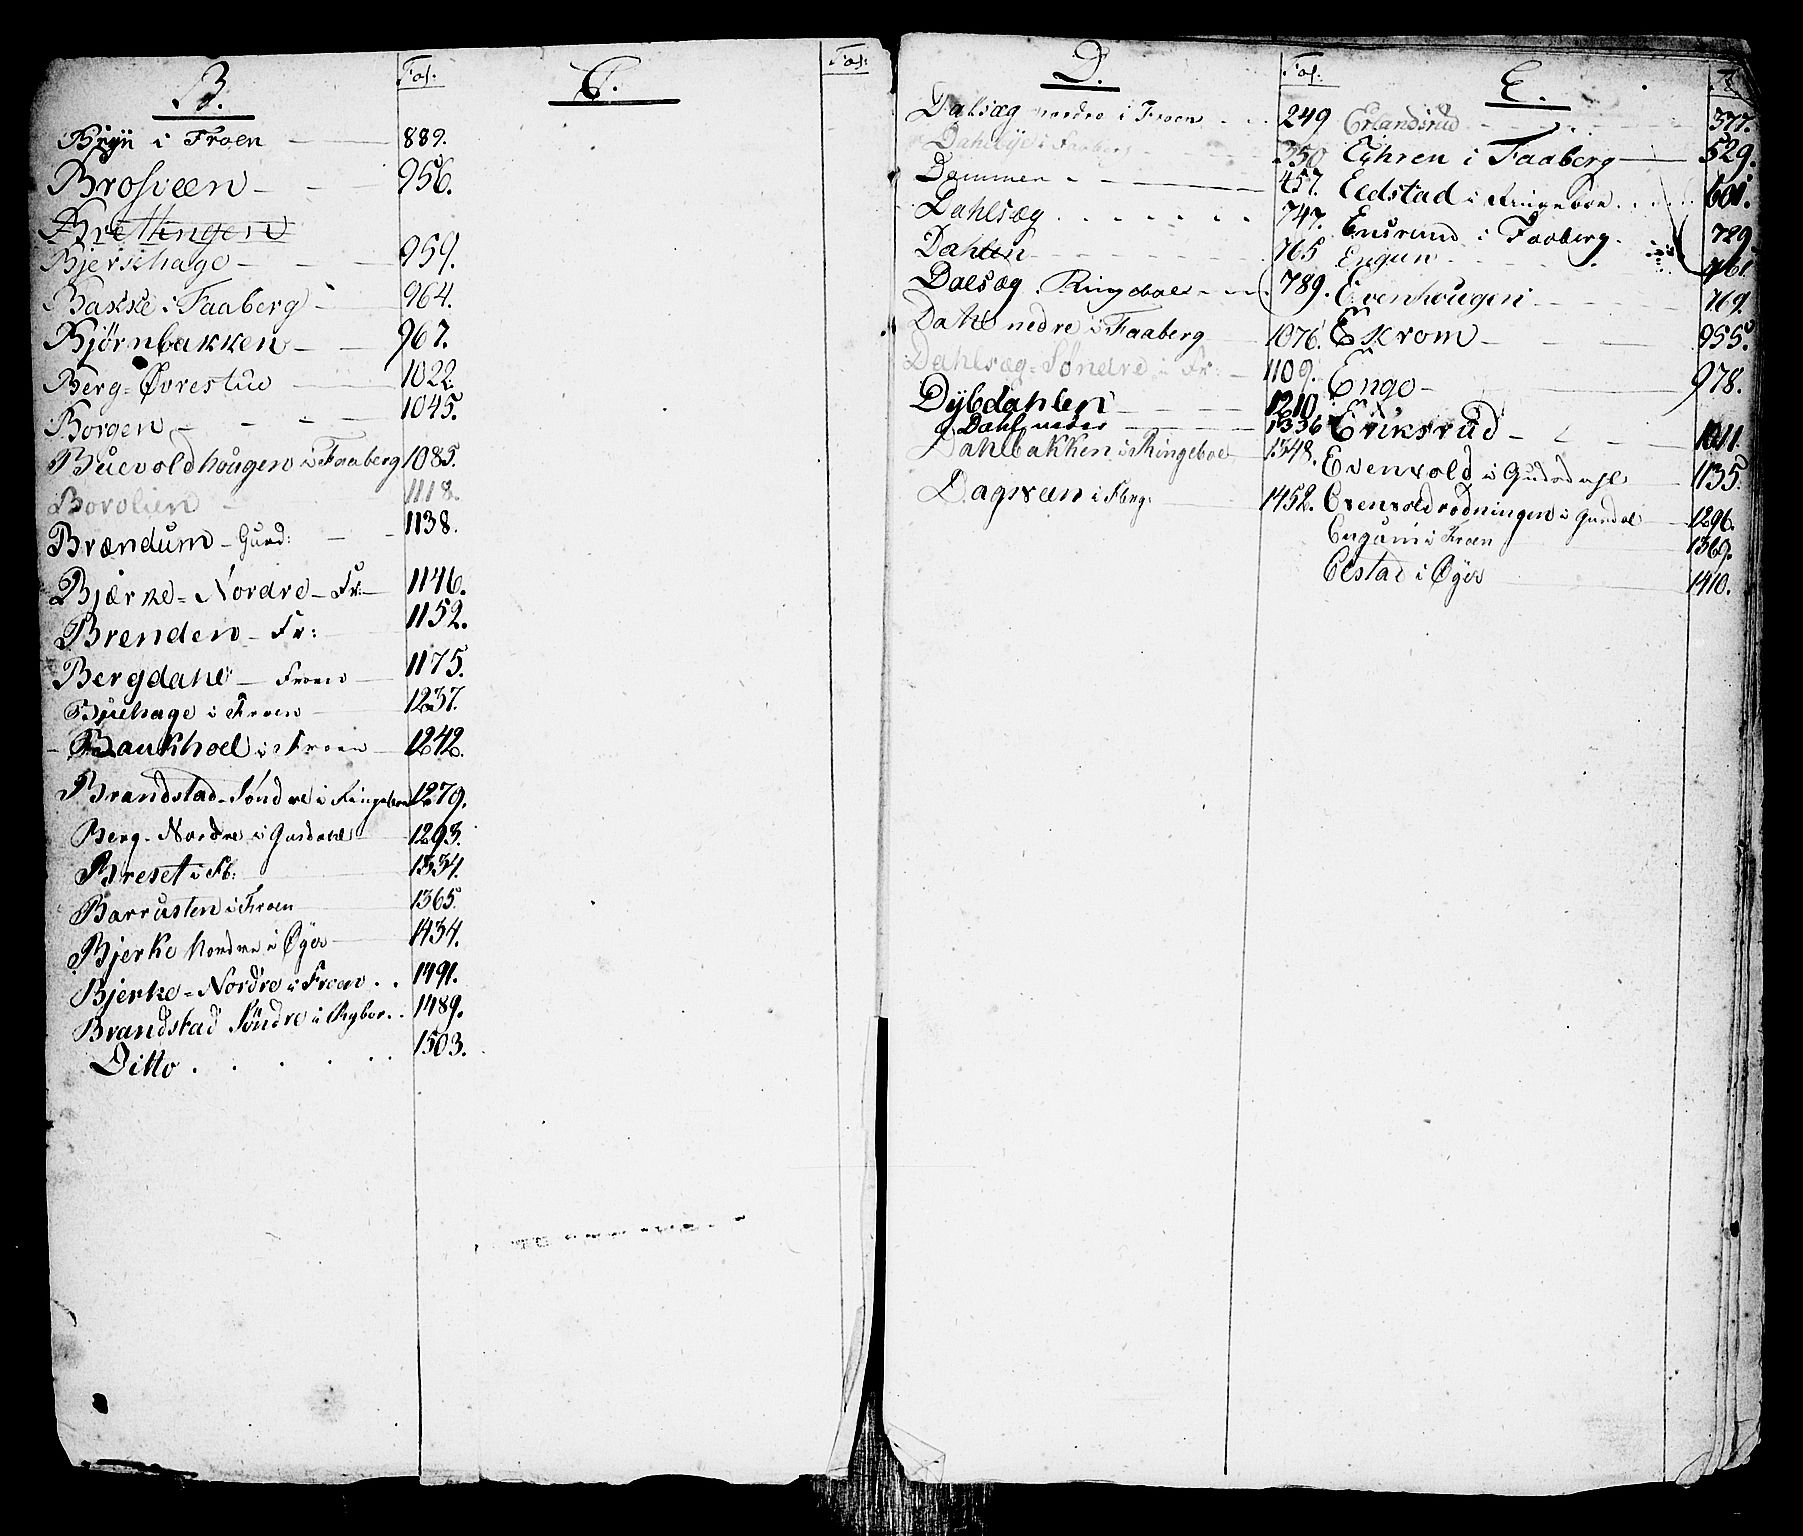 B.
Fol:
Bryn i Froen 889.
Brosveen 956.
Brettingen
Bjerkehage 959.
Bakke i Faaberg 964.
Bjørnbakken 967.
Berg=Øvrestue 1022.
Borgen 1045.
Buevoldhougen i Faaberg 1085.
Borolien 1118.
Brændum - Gusd: 1138.
Bjærke=Nordre - Fr: 1146.
Brenden - Fr: 1152.
Bergdahl - Froen 1175.
Buehage i Froen 1237.
Baukhoel i Froen 1242.
Brandstad-Søndre i Ringeboe 1279.
Berg-Nordre i Gusdahl 1293.
Breset i Fb: 1334.
Barrusten i Froen 1365.
Bjerke Nordre i Øyer 1434.
Bjerke=Nordre i Froen 1491.
Brandstad Søndre i Rgboe 1489.
Ditto 1503.
C.
Fol:
D.
Fol:
Dalsæg nordre i Froen 249
Dahlbye i Faaberg 350
Dammen 457.
Dahlsæg 747.
Dahlen 765
Dalsæg Ringeboe 789.
Dahl nedre i Faaberg 1076.
Dahlsæg-Søndre i Fr: 1109.
Dybdahlen 1210
Dahl nedre 1336
Dahlbakken i Ringeboe 1348.
Dagsveen i Fbrg: 1452.
E.
Erlandsrud 377.
Eehren i Faaberg 529.
Eedstad i Ringeboe 601.
Ensrund i Faaberg 729
Engun 761
Evenhougen 769.
Ekrom 955.
Enge 978.
Eriksrud 1011.
Evenvold i Gusdahl 1135.
Evenvoldrødningen i Gusdal 1296.
Enguni i Froen 1369.
Elstad i Øyer 1410.